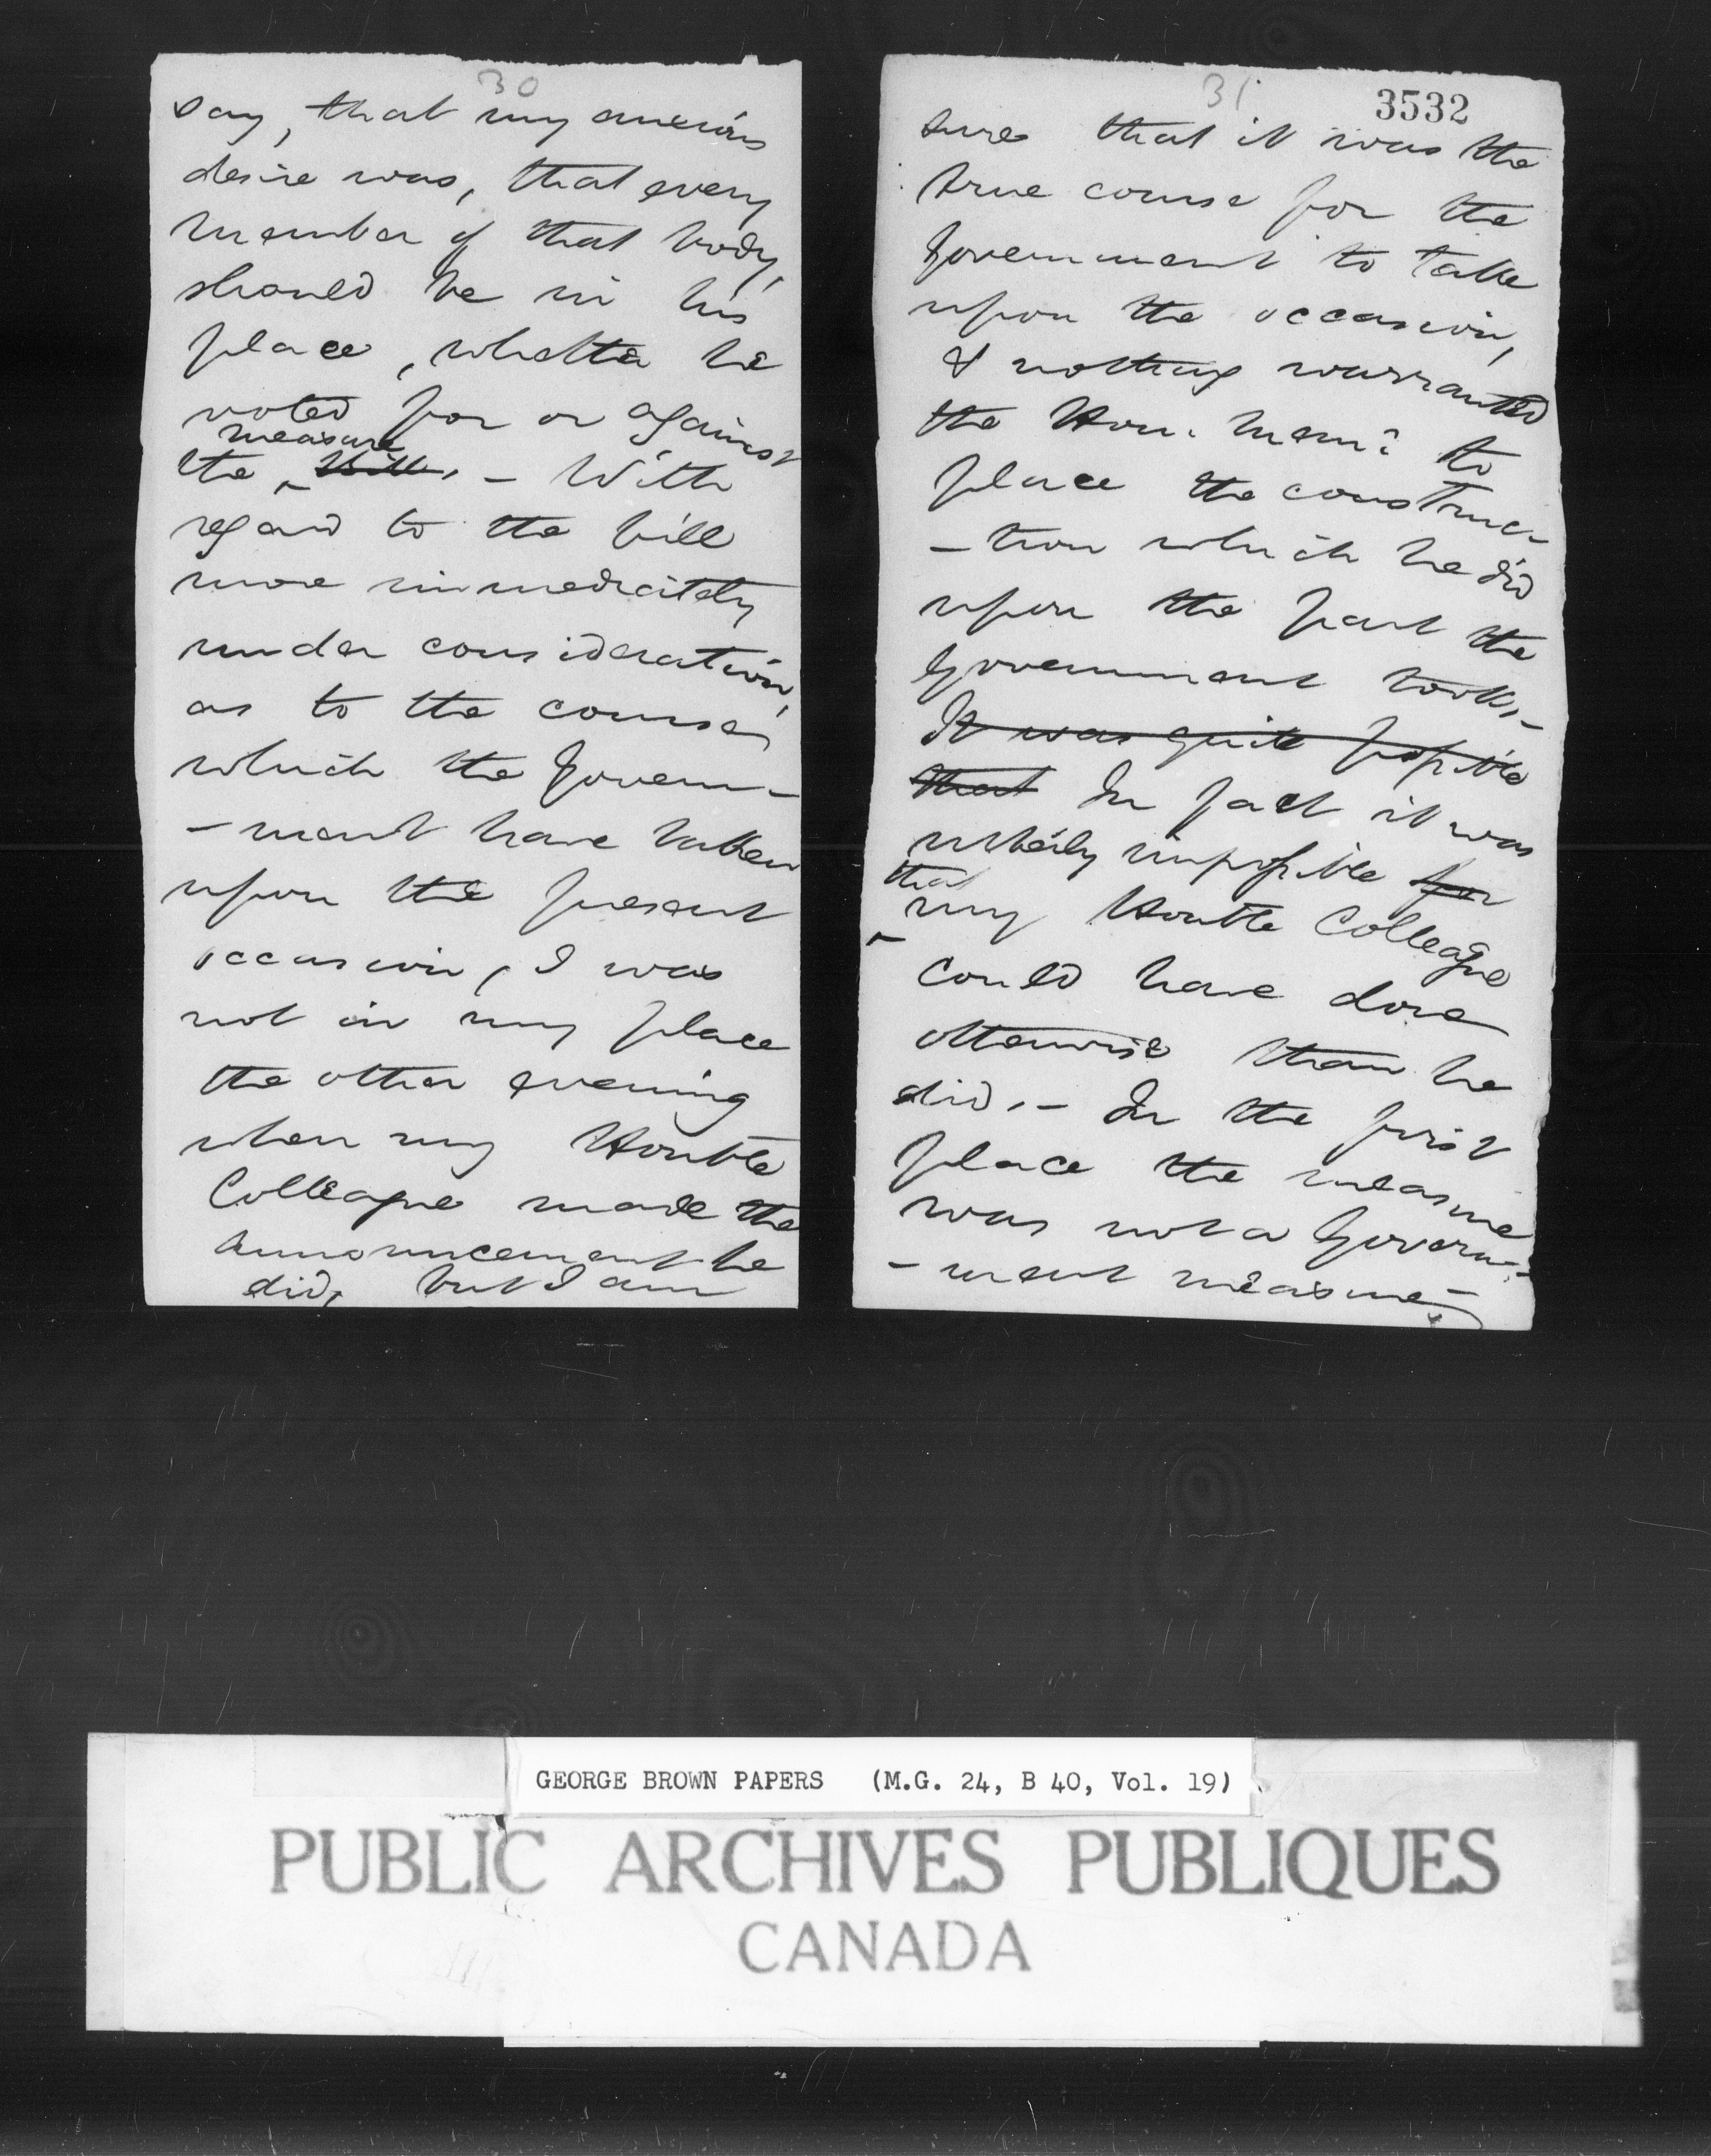 30
say, that my anxious
desire was, that every
member of that body,
should be in his
place, whether he
voted for or against
measure
the ~~bill~~. - With
regard to the bill
more immediately
under consideration,
as to the course
which the Govern-
-ment have taken
upon the present
occasion, I was
not in my place
the other evening
when my Honble
Colleague made the
announcement he
did, but I am
31
3532
sure that it was the
true course for the
Government to take
upon the occasion,
& nothing warranted
the Hon. Mem: to
place the construc-
-tion which he did
upon the part the
Government took. -
~~It was quite possible~~
~~that~~ In fact it was
utterly impossible ~~for~~
that
my Honble Colleague
could have done
otherwise than he
did. - In the first
place the measure
was not a Govern-
-ment measure
GEORGE BROWN PAPERS (M.G. 24, B 40, Vol. 19)
PUBLIC ARCHIVES PUBLIQUES
CANADA